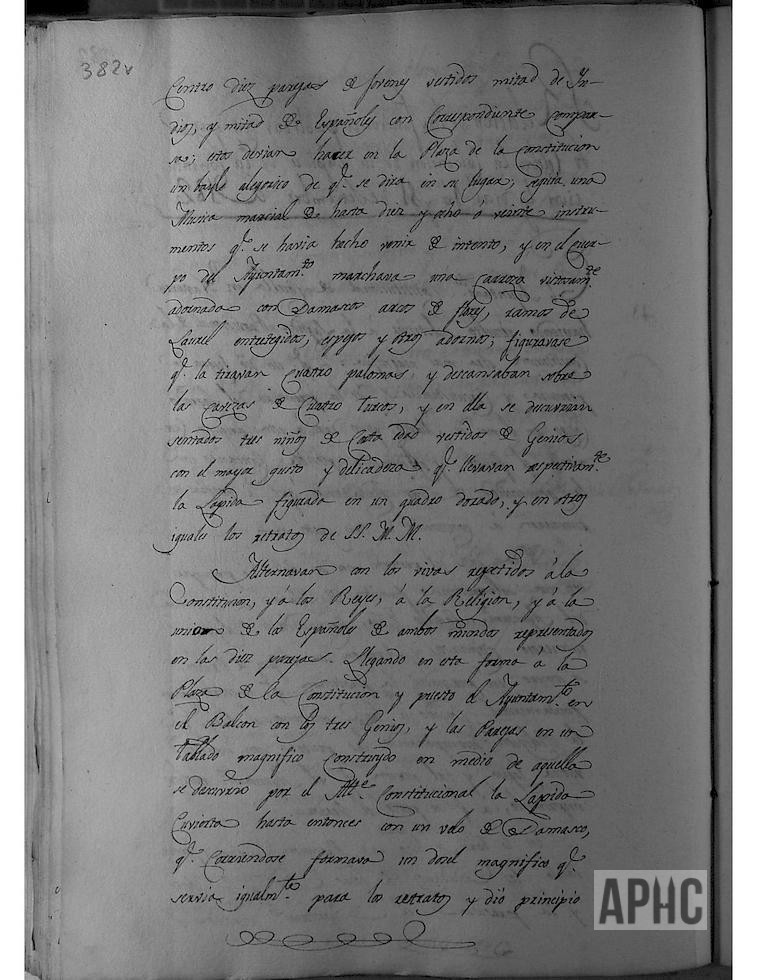 382v
Centro diez parejas de Jovenes vestidos mitad de In-
dios, y mitad de Españoles con Correspondiente Compar-
sa; estos devian hacer en la Plaza de la Constitucion
un bayle alegorico de q.e se dira en su lugar; seguia una
Musica marcial de hasta diez y ocho ó veinte instru-
mentos q.e se havia hecho venir de intento, y en el Cuer-
po del Ayuntam.to marchava una Carroza vistosam.te
adornada con Damascos arcos de flores, ramos de
Laurel entretegidos, espejos y otros adornos; figuravase
q.e la tiravan Cuatro palomas y descansaban sobre
las Cavezas de Cuatro turcos, y en ella se descuvrian
sentados tres niños de Corta edad vestidos de Genios
con el mayor gusto y delicadeza q.e llevavan respectivam.te
la Lapida figurada en un quadro dorado, y en otros
iguales los retratos de SS. M.M.
Alternavan con los vivas repetidos á la
Constitucion, y á los Reyes, á la Religion, y á la
union de los Españoles de ambos mundos representados
en las diez parejas. Llegando en esta forma á la
Plaza de la Constitucion y puesto el Ayuntam.to en
el Balcon con los tres Genios, y las Parejas en un
tablado magnifico construydo en medio de aquella
se descuvrio por el Alc.e Constitucional la Lapida
Cuvierta hasta entonces con un velo de Damasco,
q.e Corriendose formava un dosel magnifico q.e
servia igualm.te para los retratos y dió principio
APHC